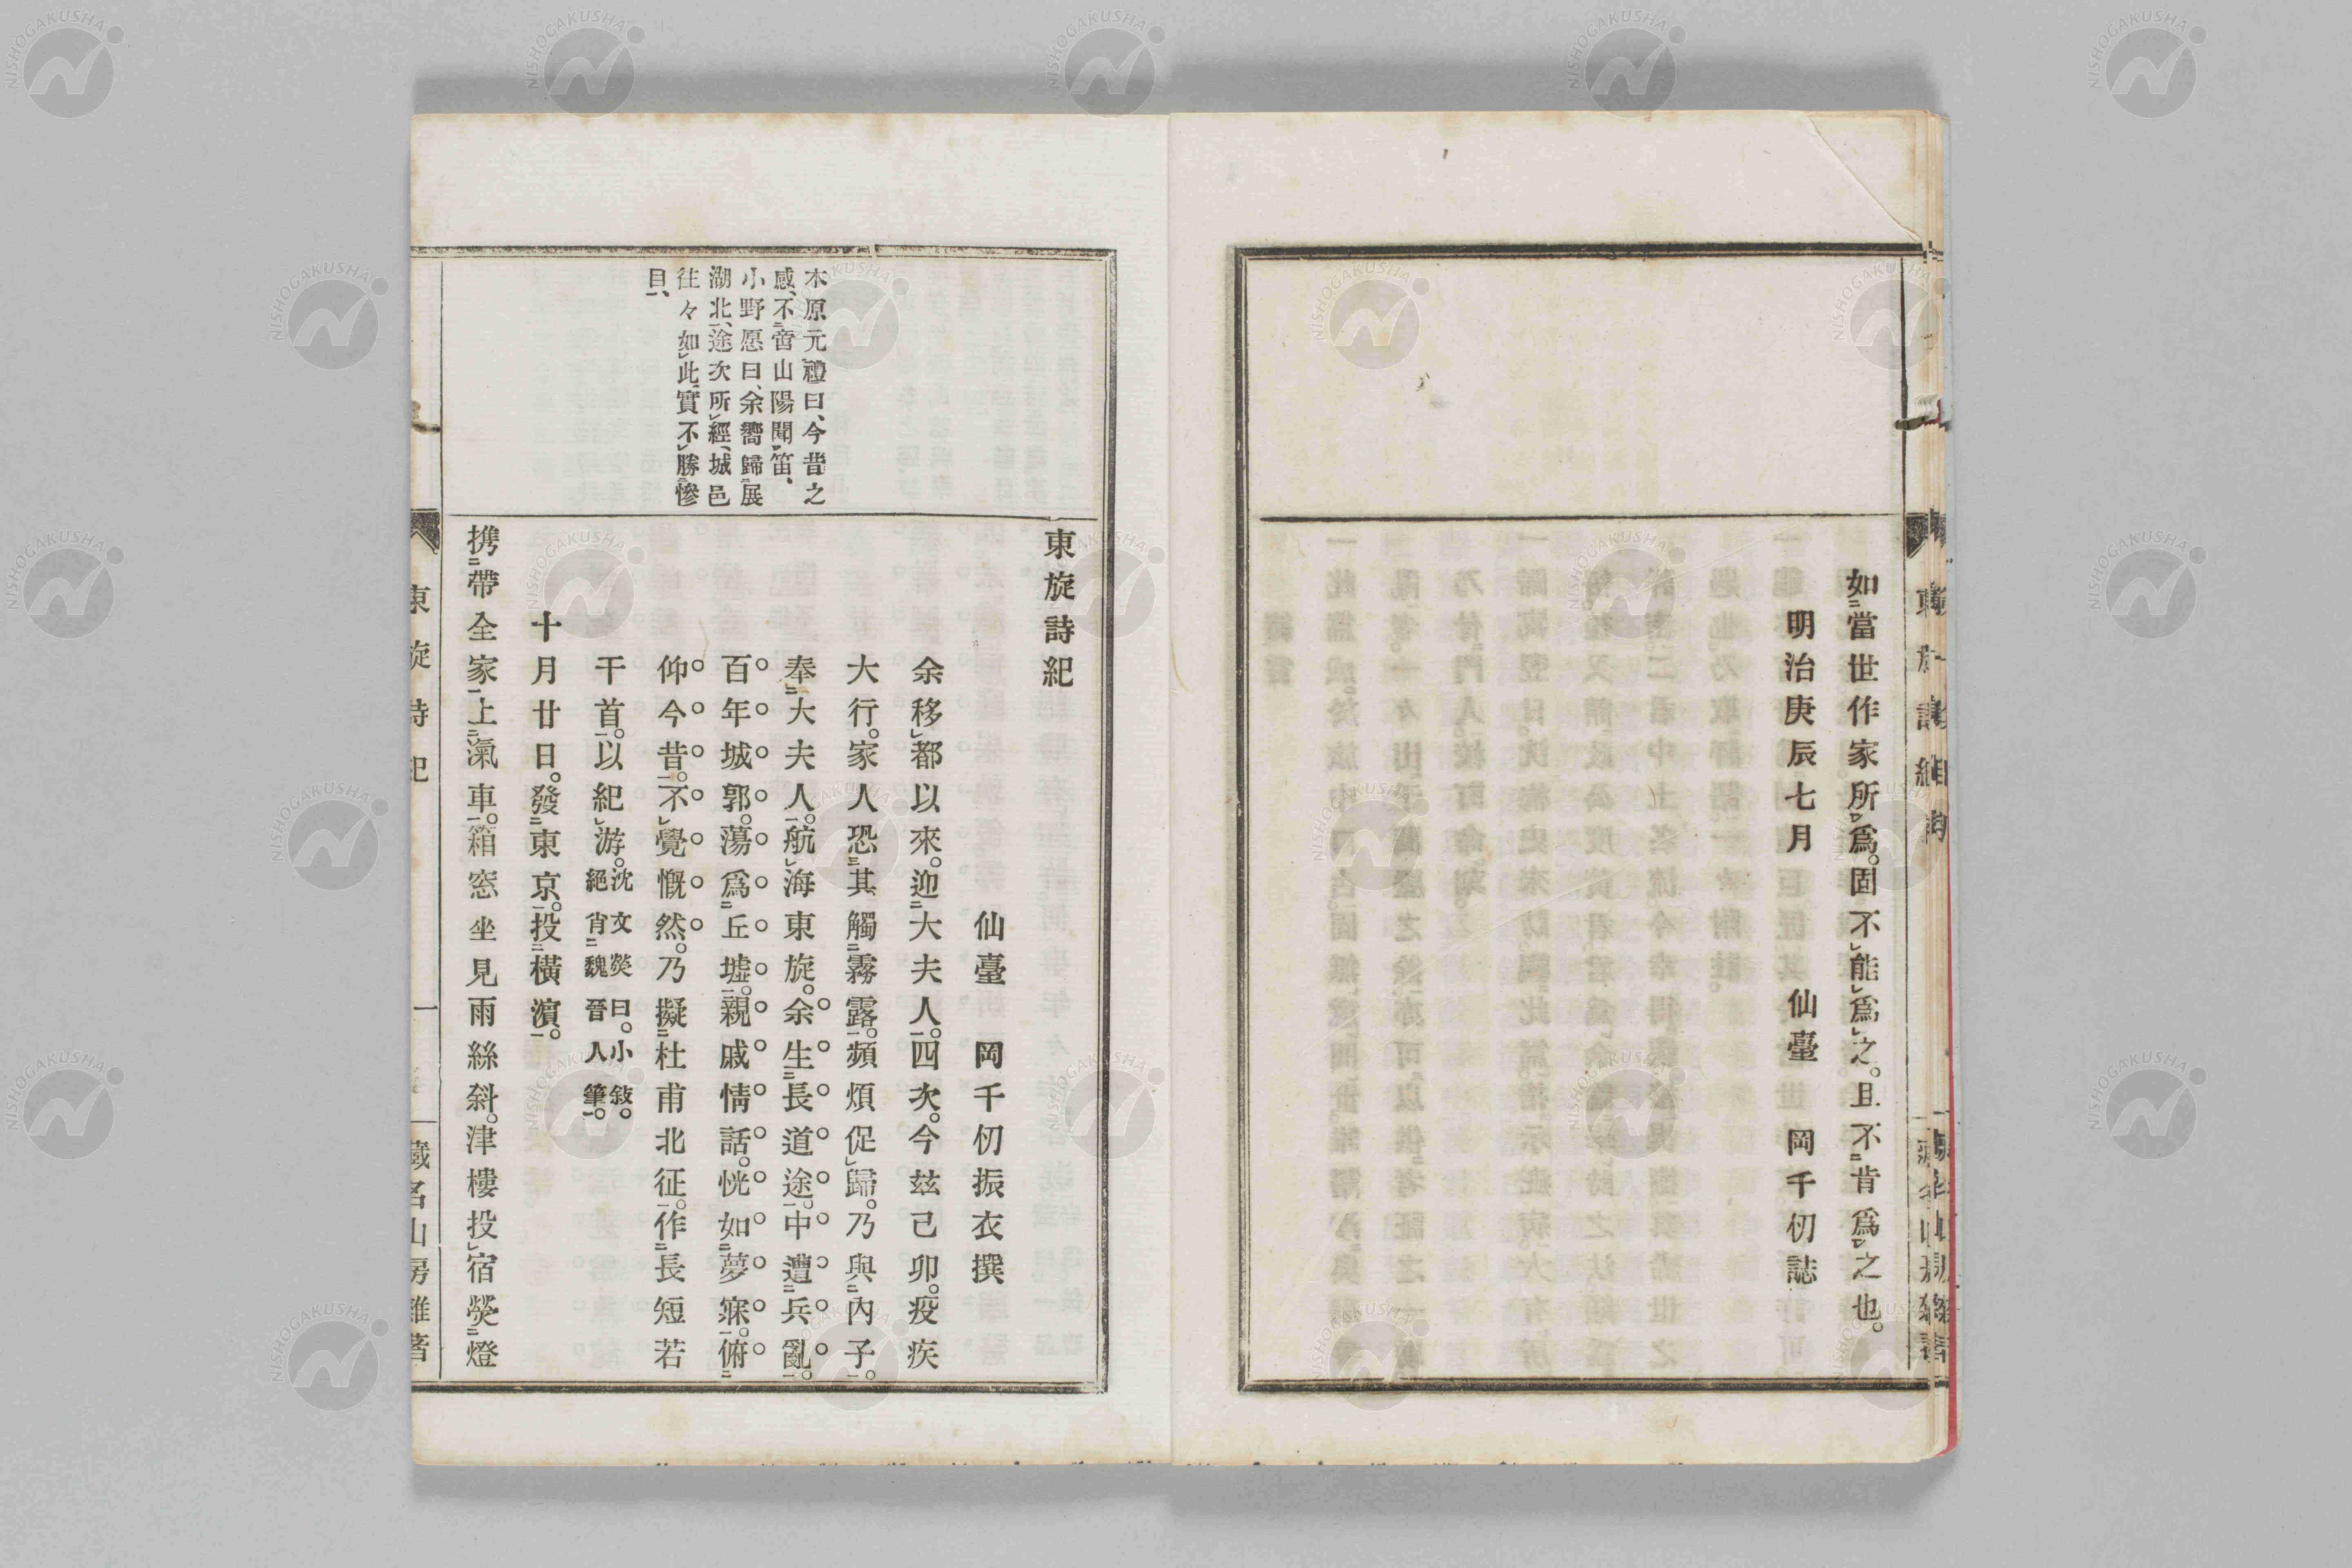 如當世作家所爲。固不能爲之。且不肯爲之也。
明治庚辰七月　仙臺　岡千仞誌
東旋詩紀
仙臺　岡千仞振衣撰
余移都以來。迎大夫人。四次。今玆己卯。疫疾
大行。家人恐其觸霧露。頻煩促歸。乃與內子。
奉大夫人。航海東旋。余生長道途。中遭兵亂。
百年城郭。蕩爲丘墟。親戚情話。恍如夢寐。俯
仰今昔。不覺慨然。乃擬杜甫北征。作長短若
干首。以紀游。沈文熒曰。小敍。
絕肖魏晉人筆。
十月廿日。發東京。投橫濱。
携帶全家上氣車。箱窓坐見雨絲斜。津樓投宿熒燈
木原元禮曰、今昔之
感、不啻山陽聞笛、
小野愿曰、余嚮歸展
湖北、途次所經、城邑
往々如此、實不勝慘
目、
東旋詩紀
一
藏名山房雜著
NISHOGAKUSHA